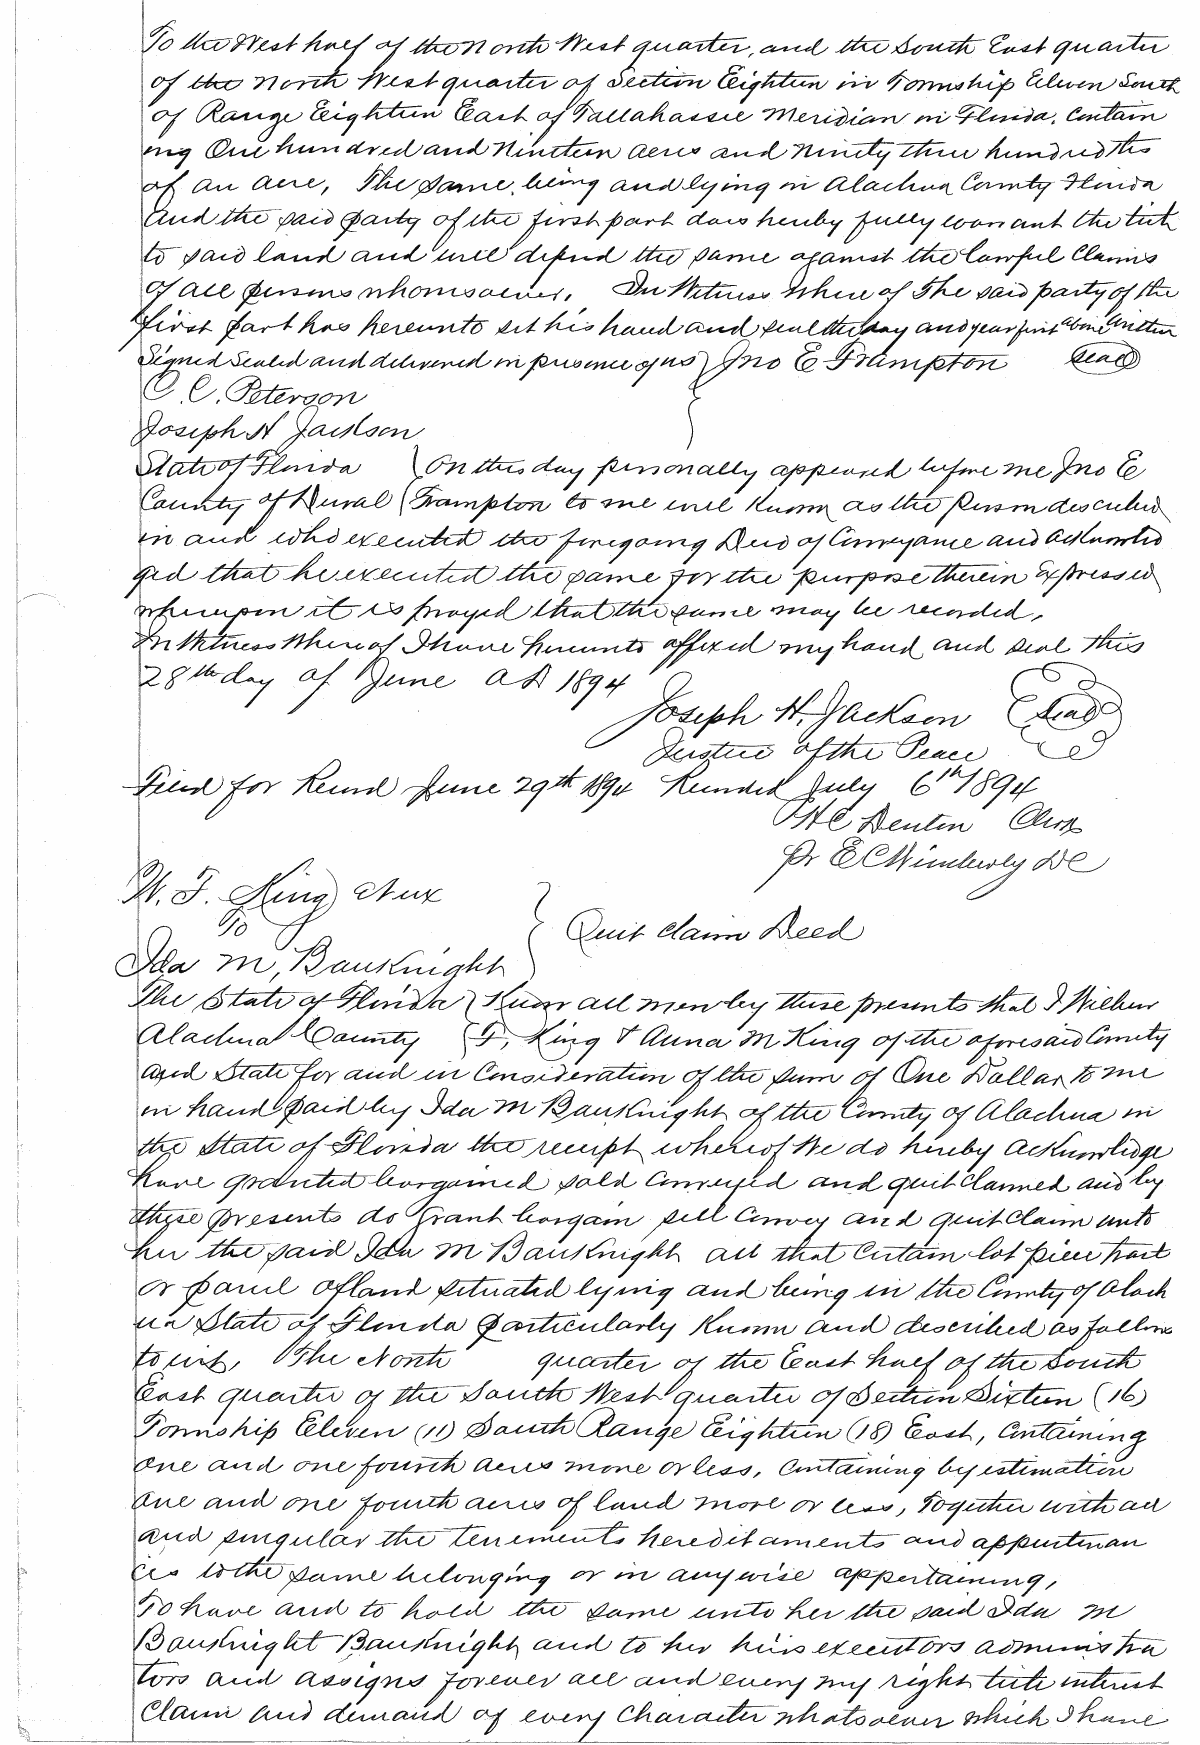 To the West half of the North West quarter, and the South East quarter
of the North West quarter of Section Eighteen in Township Eleven South
of Range Eighteen East of Tallahassee Meridian in Florida, Contain
ing One hundred and Nineteen acres and Ninety three hundredths
of an acre, The same, being and lying in Alachua County Florida
And the said party of the first part does hereby fully warrant the title
to said land and will defend the same against the lawful Claims
of all persons whomsoever. In Witness Where of The said party of the
first part has hereunto set his hand and seal the day and year first above written
Signed Sealed and delivered in presence of us } Jno E Frampton Seal
C. C. Peterson
Joseph H Jackson
State of Florida } On this day personally appeared before me Jno E
County of Duval } Frampton to me well Known as the Person described
in and who executed the foregoing Deed of Conveyance and Acknowled
ged that he executed the same for the purpose therein expressed
whereupon it is prayed that the same may be recorded.
In Witness Where of I have hereunto affixed my hand and seal this
28th day of June A D 1894
Joseph H. Jackson Seal
Justice of the Peace
Filed for Record June 29th 1894 Recorded July 6th 1894
H C Denton Clerk
Pr E C Wimberly D C
W. F. King et ux
To } Quit Claim Deed
Ida M, Bauknight
The State of Florida } Know all men by these presents that I Wilbur
Alachua County } F, King & Anna M King of the aforesaid County
and State for and in Consideration of the sum of One Dollar to me
in hand paid by Ida M Bauknight of the County of Alachua in
the State of Florida the receipt whereof We do hereby acknowledge
have granted bargained sold Conveyed and quit Claimed and by
these presents do Grant bargain sell Convey and quit Claim unto
her the said Ida M Bauknight all that Certain lot piece tract
or parcel of land situated lying and being in the County of Alach
ua State of Florida particularly Known and described as follows
to wit, The North quarter of the East half of the South
East quarter of the South West quarter of Section Sixteen (16)
Township Eleven (11) South Range Eighteen (18) East, Containing
one and one fourth acres more or less, Containing by estimation
one and one fourth acres of land more or less, Together with all
and singular the tenements hereditaments and appurtenan
ces to the same belonging or in anywise appertaining,
To have and to hold the same unto her the said Ida M
Bauknight Bauknight and to her heirs executors administra
tors and assigns forever all and every my right title interest
Claim and demand of every Character whatsoever which I have